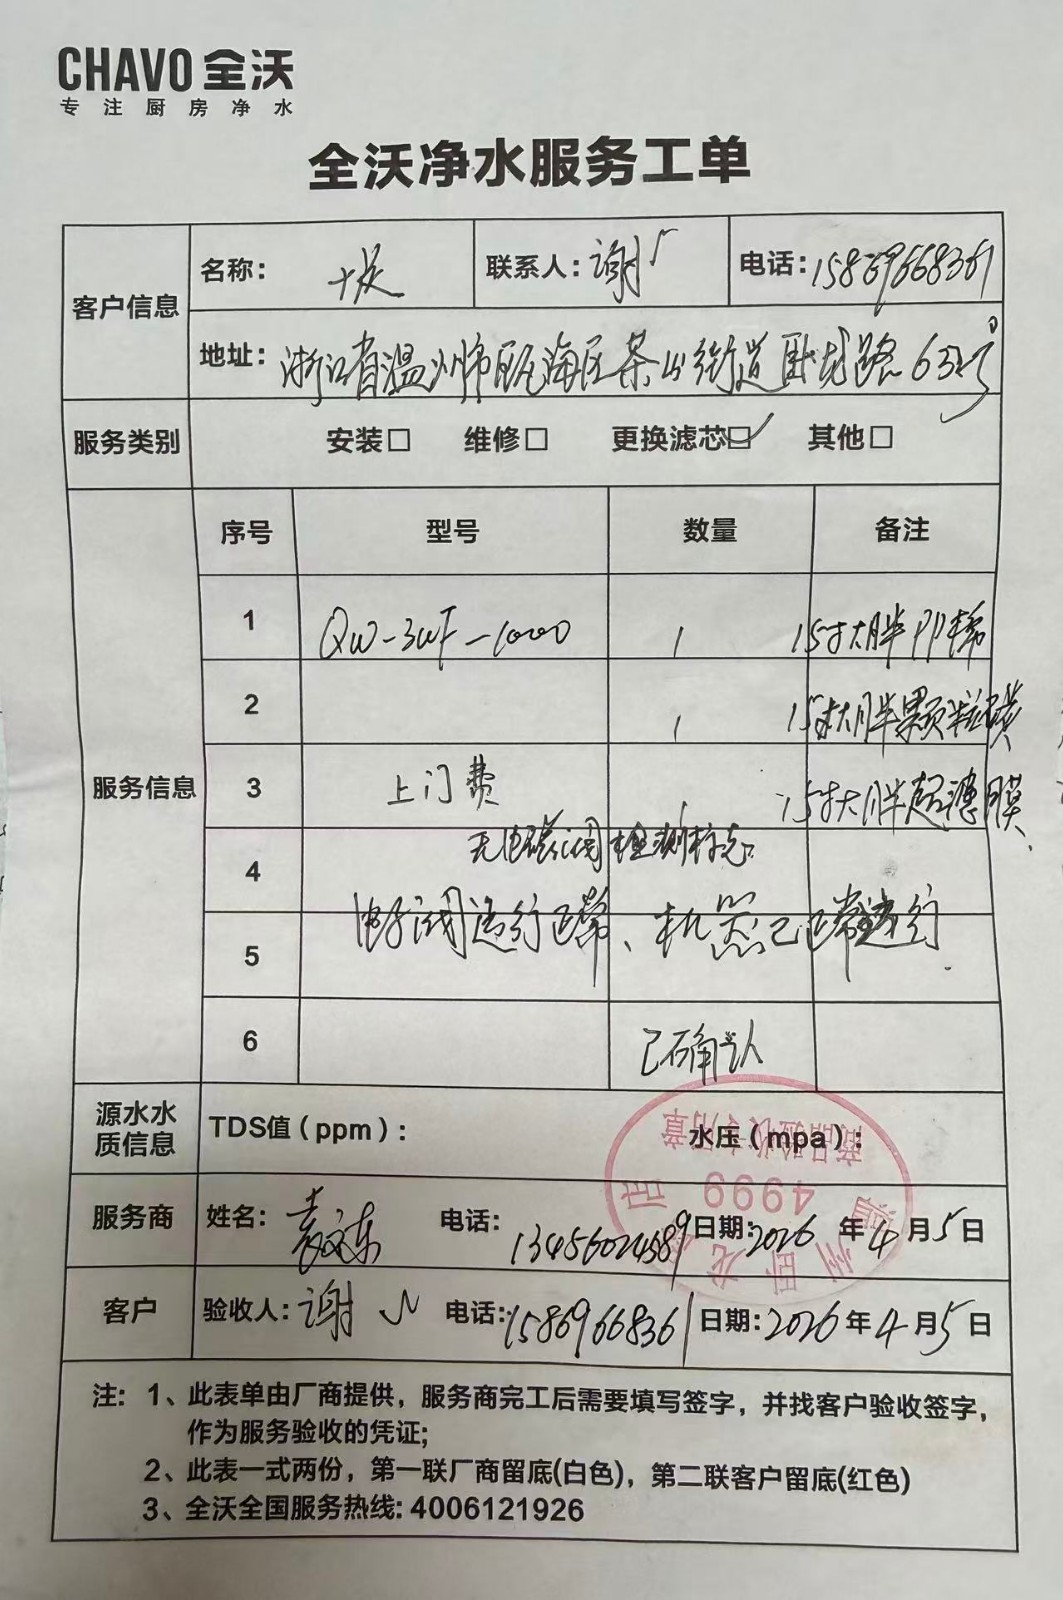 CHAVO 全沃
专注厨房净水
全沃净水服务工单
客户信息
名称：
联系人：谢
电话：15869668361
地址：浙江省温州市瓯海区茶山街道卧龙路63号
服务类别 安装□ 维修□ 更换滤芯□✓ 其他□
服务信息
序号 型号 数量 备注
1 QW-3WF-1000 1 15寸大胖PP棉
2 1 15寸大胖颗粒碳
3 上门费 1 15寸大胖超滤膜
4 无电磁阀检测标志
5 电子阀运行正常、机器已正常运行
6 已确认
源水水质信息 TDS值（ppm）： 水压（mpa）：
服务商 姓名：袁文东 电话：13456024589 日期：2026年4月5日
客户 验收人：谢 电话：15869668361 日期：2026年4月5日
商品验收专用章
4999
温州卧龙 店
注：1、此表单由厂商提供，服务商完工后需要填写签字，并找客户验收签字，
作为服务验收的凭证；
2、此表一式两份，第一联厂商留底(白色)，第二联客户留底(红色)
3、全沃全国服务热线：4006121926